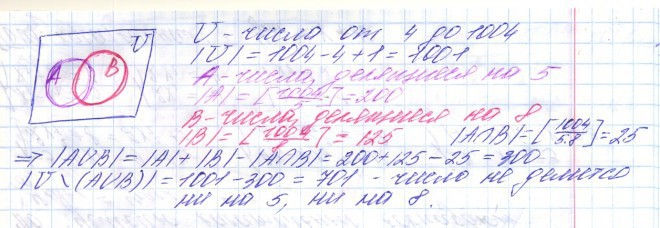 U
A B
U - числа от 4 до 1004
|U| = 1004 - 4 + 1 = 1001
A - числа, делящиеся на 5
|A| = [1004/5] = 200
B - числа, делящиеся на 8
|B| = [1004/8] = 125 |A∩B| = [1004/5·8] = 25
=> |A∪B| = |A| + |B| - |A∩B| = 200 + 125 - 25 = 300
|U \ (A∪B)| = 1001 - 300 = 701 - число не делится
ни на 5, ни на 8.